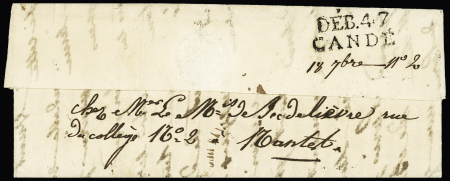 DEB. 47
CANDÉ
18 7bre n° 2
chez Mr Le Mis de rue
du collège No 2 Nantes.